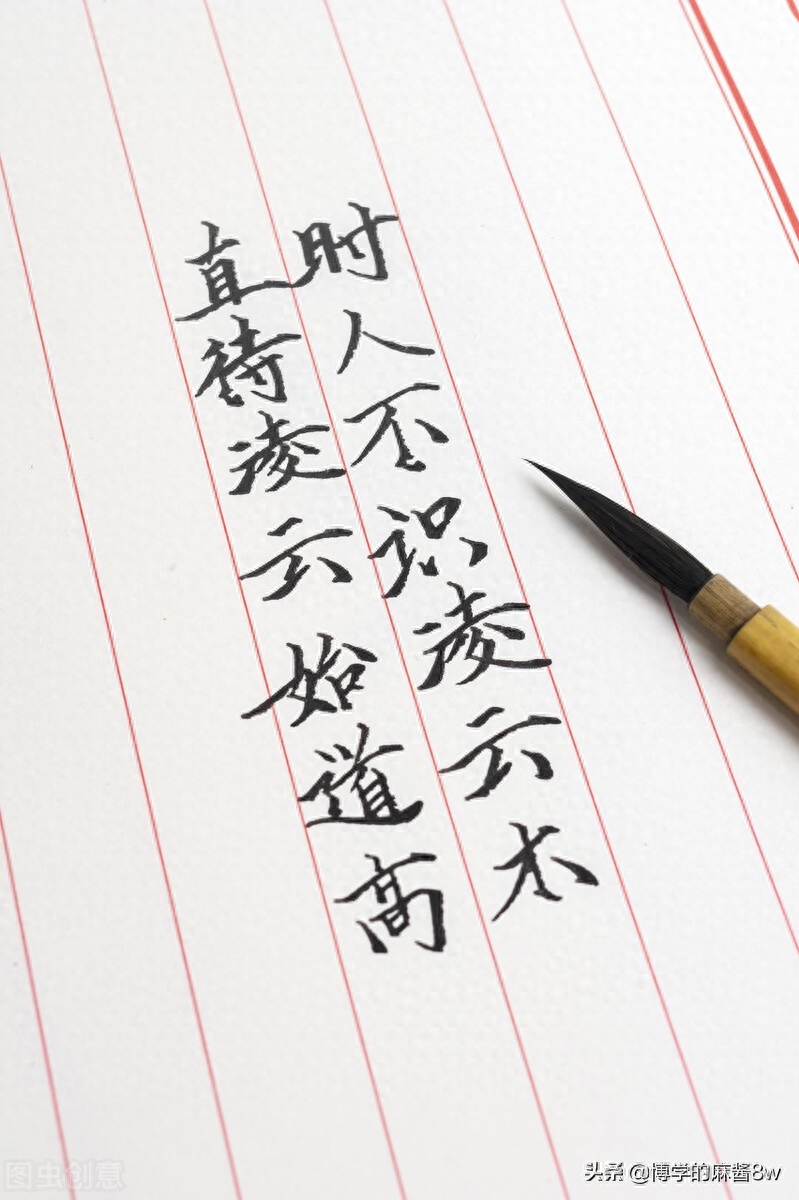 时人不识凌云木
直待凌云始道高
图虫创意
头条 @博学的麻酱8w